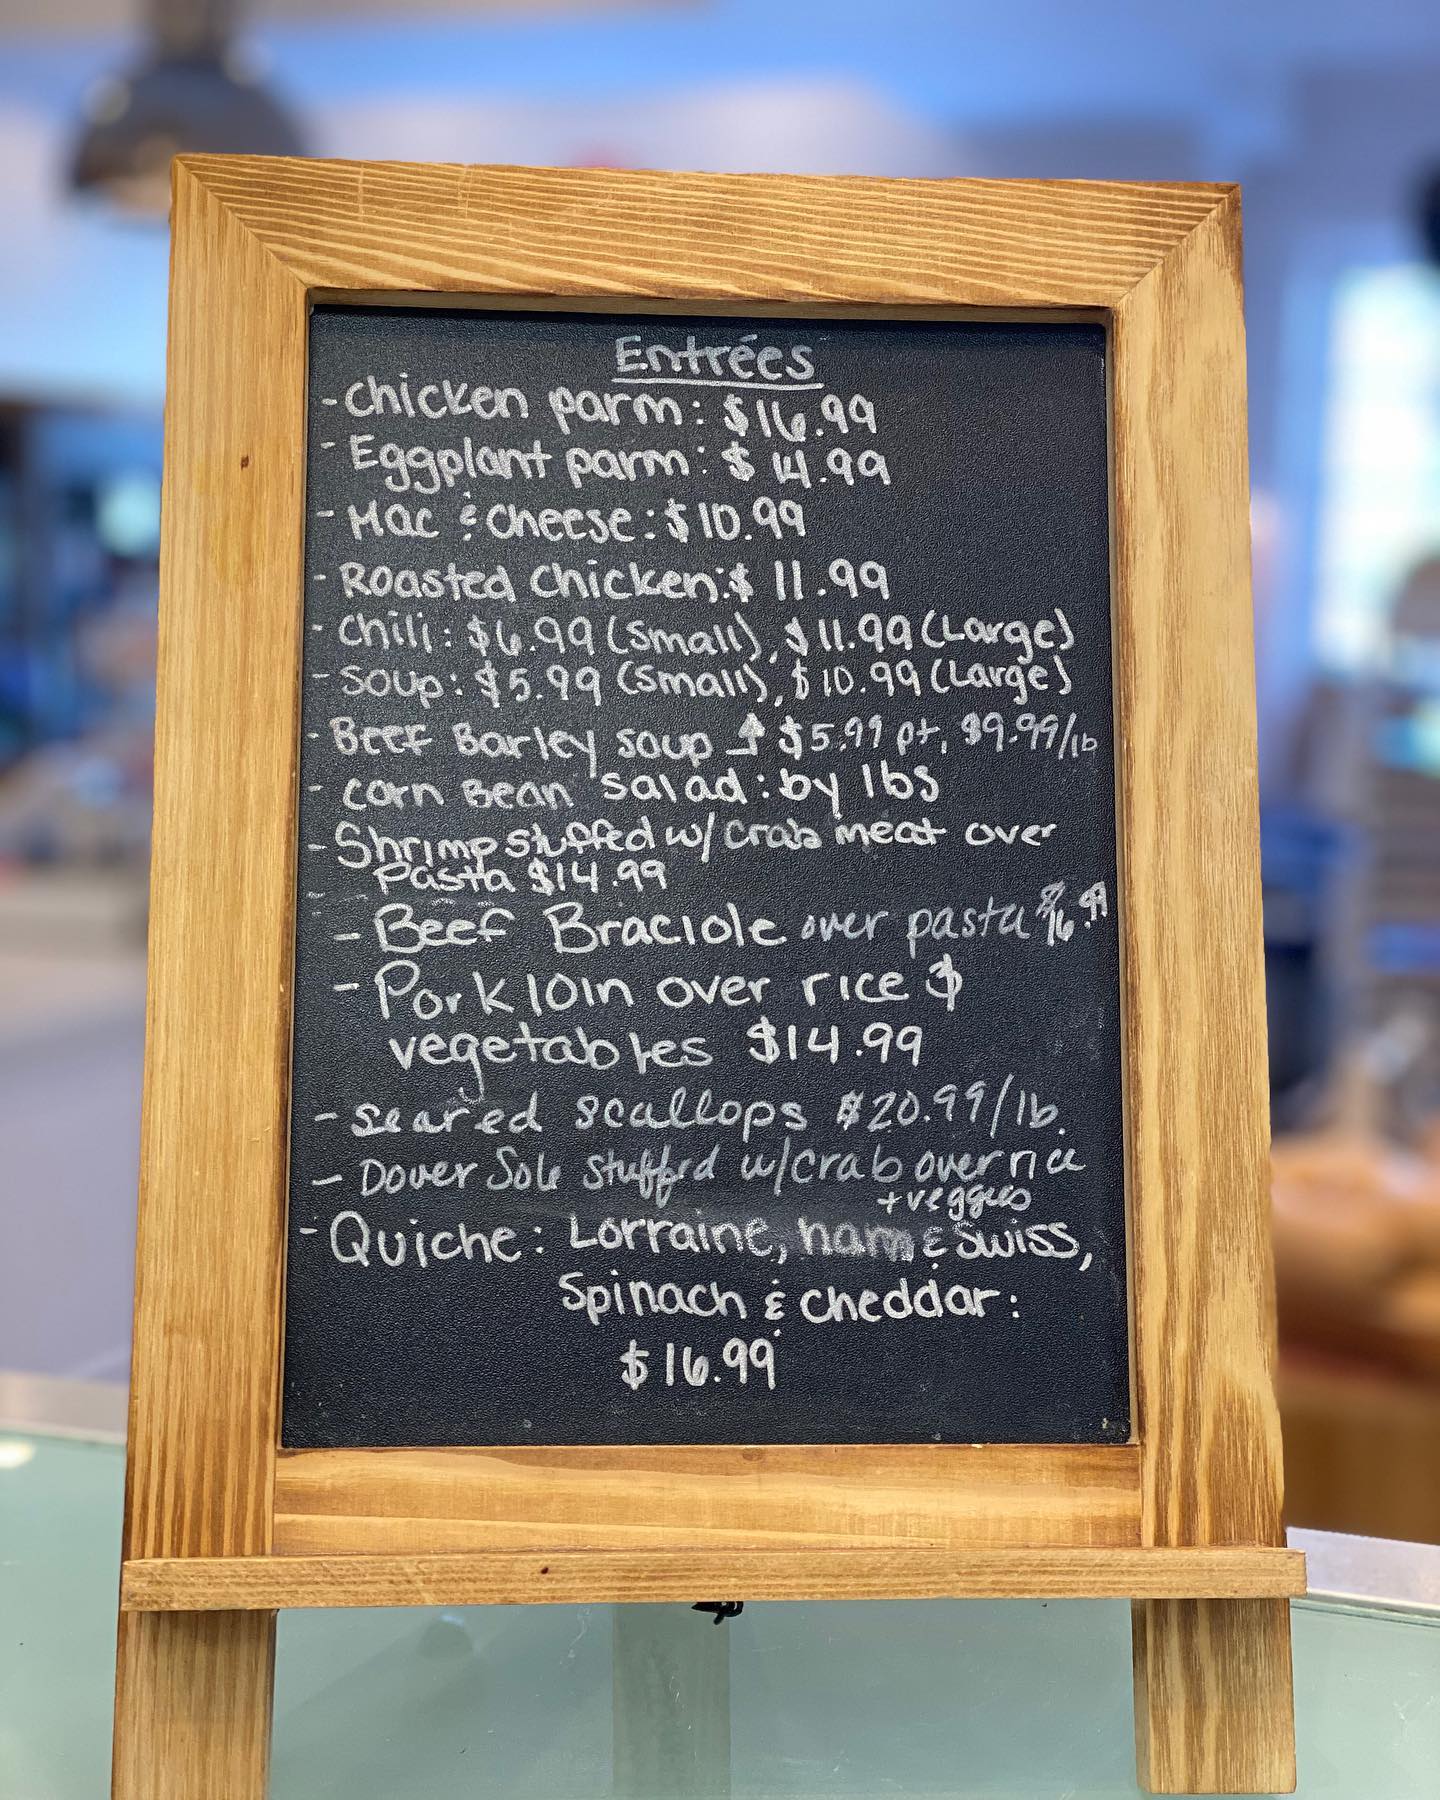 Entrées
- Chicken parm: $16.99
- Eggplant parm: $14.99
- Mac & Cheese: $10.99
- Roasted Chicken: $11.99
- Chili: $6.99 (Small), $11.99 (Large)
- Soup: $5.99 (Small), $10.99 (Large)
- Beef Barley Soup ↑ $5.99 pt, $9.99/lb
- Corn Bean Salad: by lbs
- Shrimp stuffed w/ Crab meat over
Pasta $14.99
- Beef Braciole over pasta $16.99
- Pork loin over rice $
vegetables $14.99
- seared scallops $20.99/lb.
- Dover Sole stuffed w/crab over rice
+veggies
- Quiche: Lorraine, ham & Swiss,
Spinach & cheddar:
$16.99